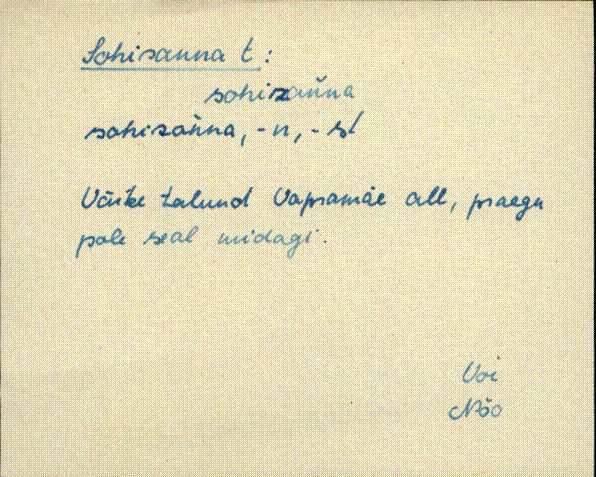 Sohisanna t:
sohisańna
sohisańna, -n, -st
Väike talund Vapramäe all, praegu
pole seal midagi.
Voi
Nõo